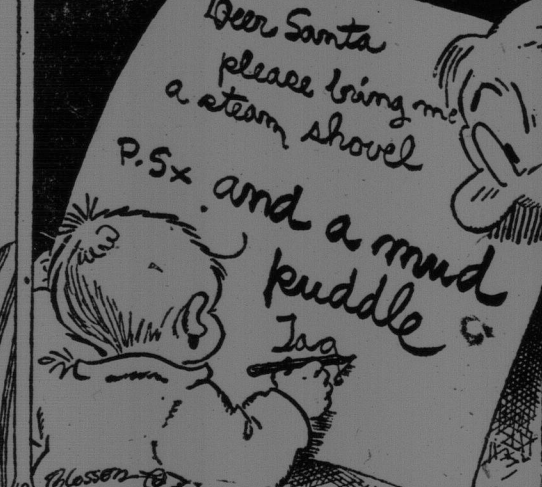 Deer Santa
please bring me
a steam shovel
P.Sx. and a mud
puddle
Tag
Blosser